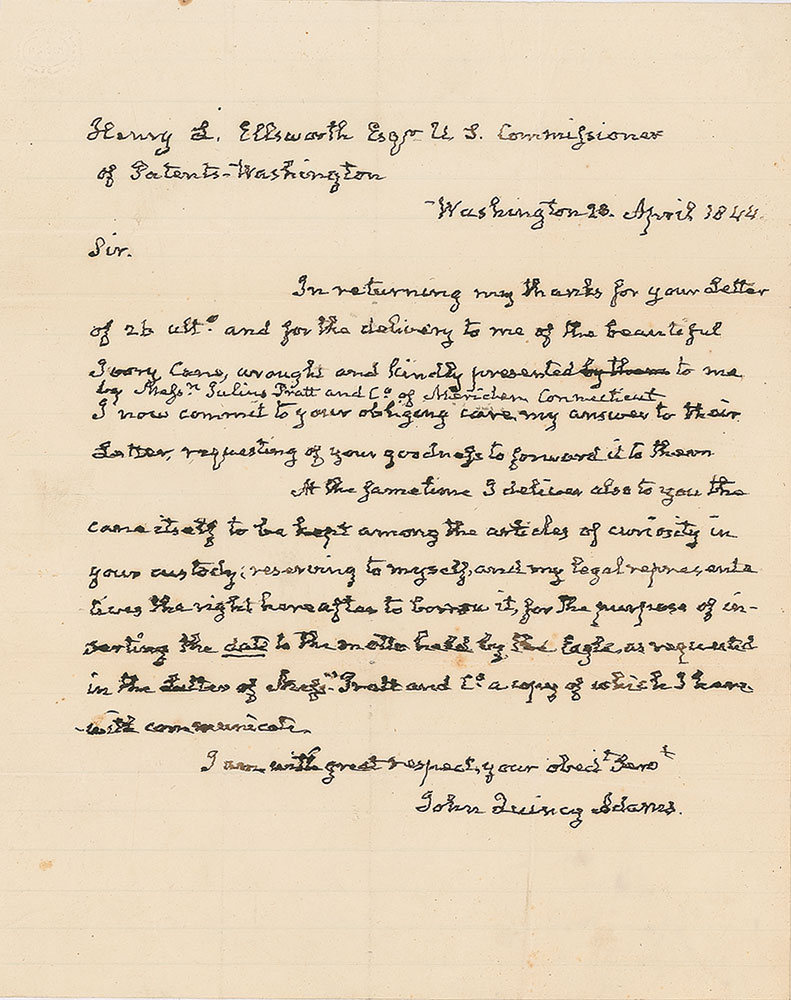 Henry L. Ellsworth Esqr. U. S. Commissioner
of Patents - Washington
Washington 23. April 1844.
Sir.
In returning my thanks for your Letter
of 26 ulto. and for the delivery to me of the beautiful
Ivory Cane, wrought and kindly presented by them to me
by Messrs. Julius Pratt and Co. of Meriden Connecticut
I now commit to your obliging care, my answer to their
Letter, requesting of your goodness to forward it to them
At the same time I deliver also to you the
cane itself to be kept among the articles of curiosity in
your custody; reserving to myself, and my legal representa
tives the right hereafter to borrow it, for the purpose of in-
serting the date to the motto held by the Eagle, as requested
in the Letter of Messrs. Pratt and Co. a copy of which I here
with communicate.
I am with great respect, your obedt. Servt.
John Quincy Adams.